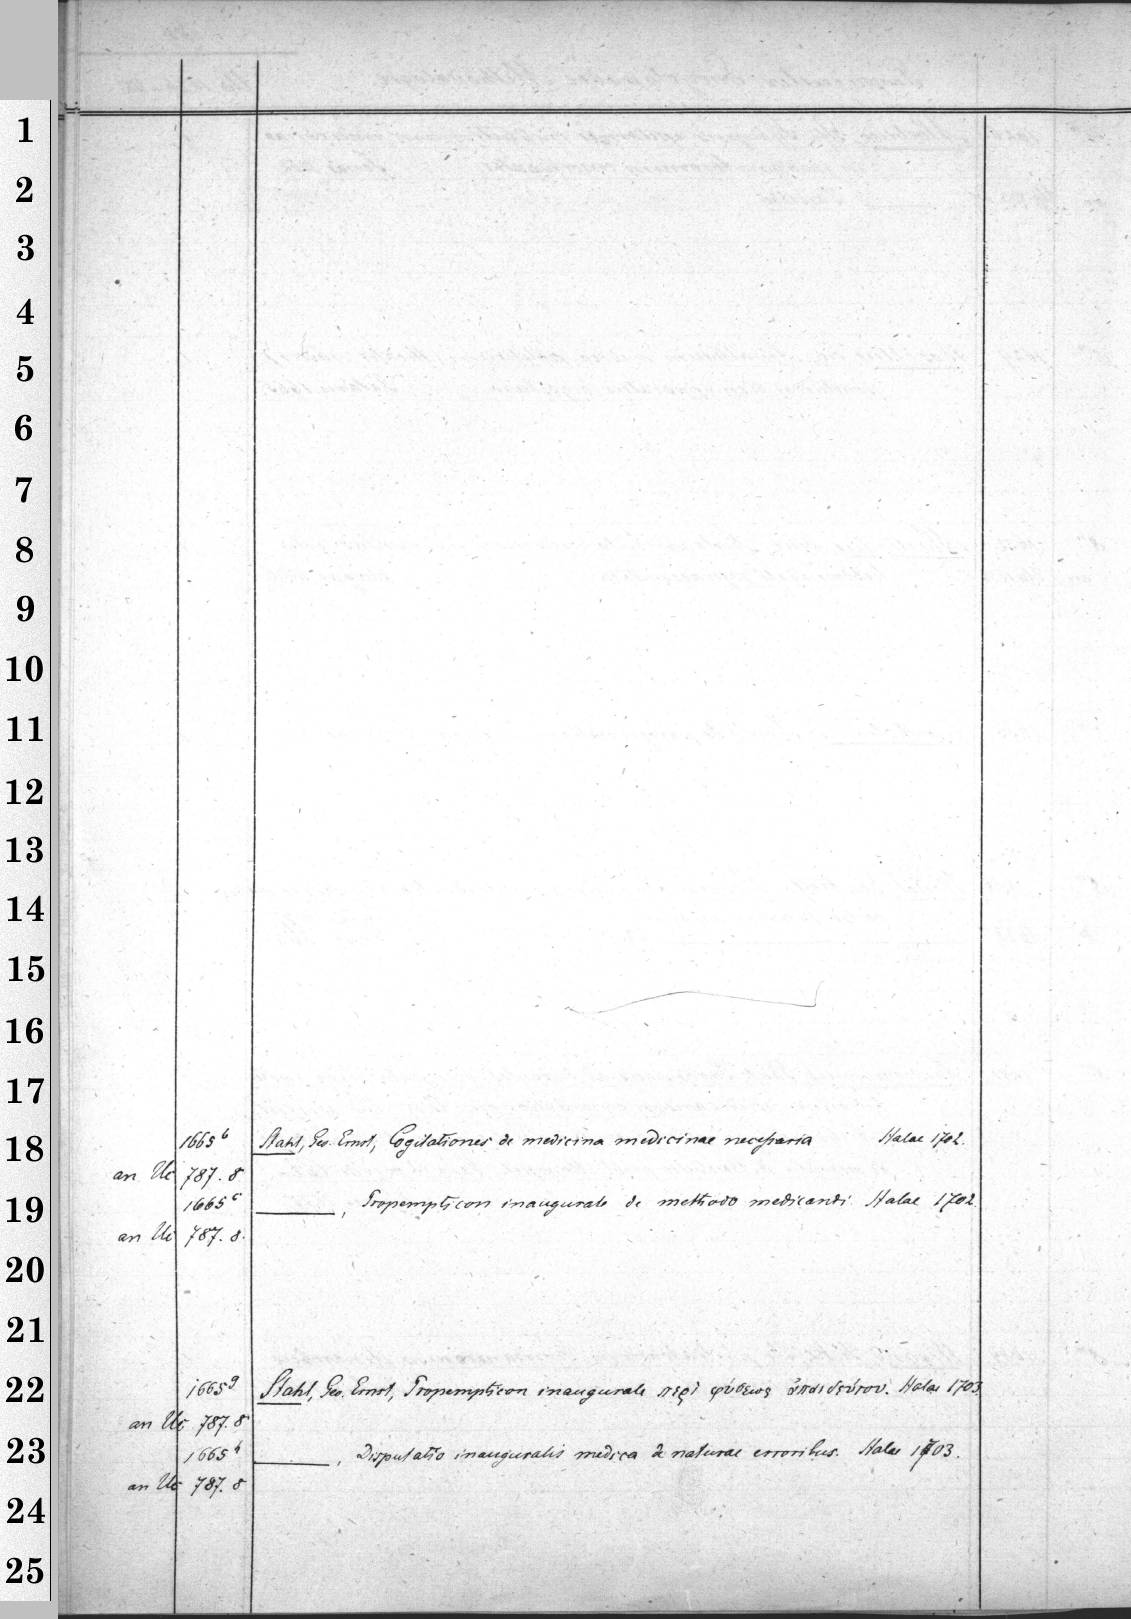 1
2
3
4
5
6
7
8
9
10
11
12
13
14
15
16
17
18 1665 b Stahl, Geo. Ernst, Cogitationes de medicina medicinae necessaria Halae 1702.
an Uc 787. 8
19 1665 c ______, Propempticon inaugurale de methodo medicandi Halae 1702.
an Uc 787. 8.
20
21
22 1665 g Stahl, Geo. Ernst, Propempticon inaugurale περὶ φύσεως ἀπαιδεύτου. Halae 1703.
an Uc 787. 8
23 1665 h ______, Disputatio inauguralis medica de naturae erroribus. Halae 1703.
an Uc 787. 8
24
25